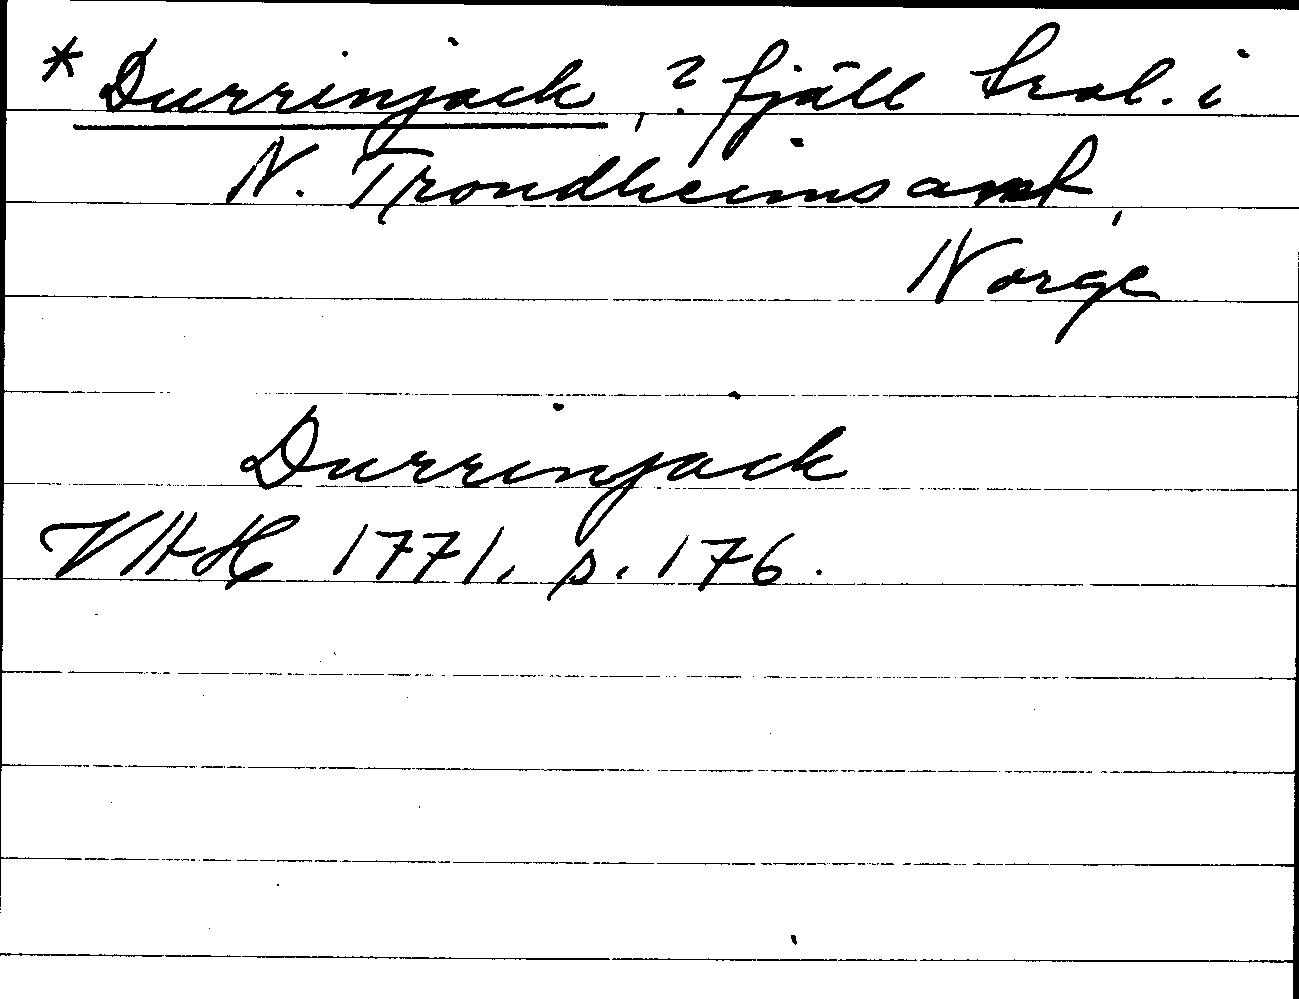 * Durrinjack, ? fjäll trol. i
N. Trondheims amt,
Norge
Durrinjack
VHH 1771, s. 176.